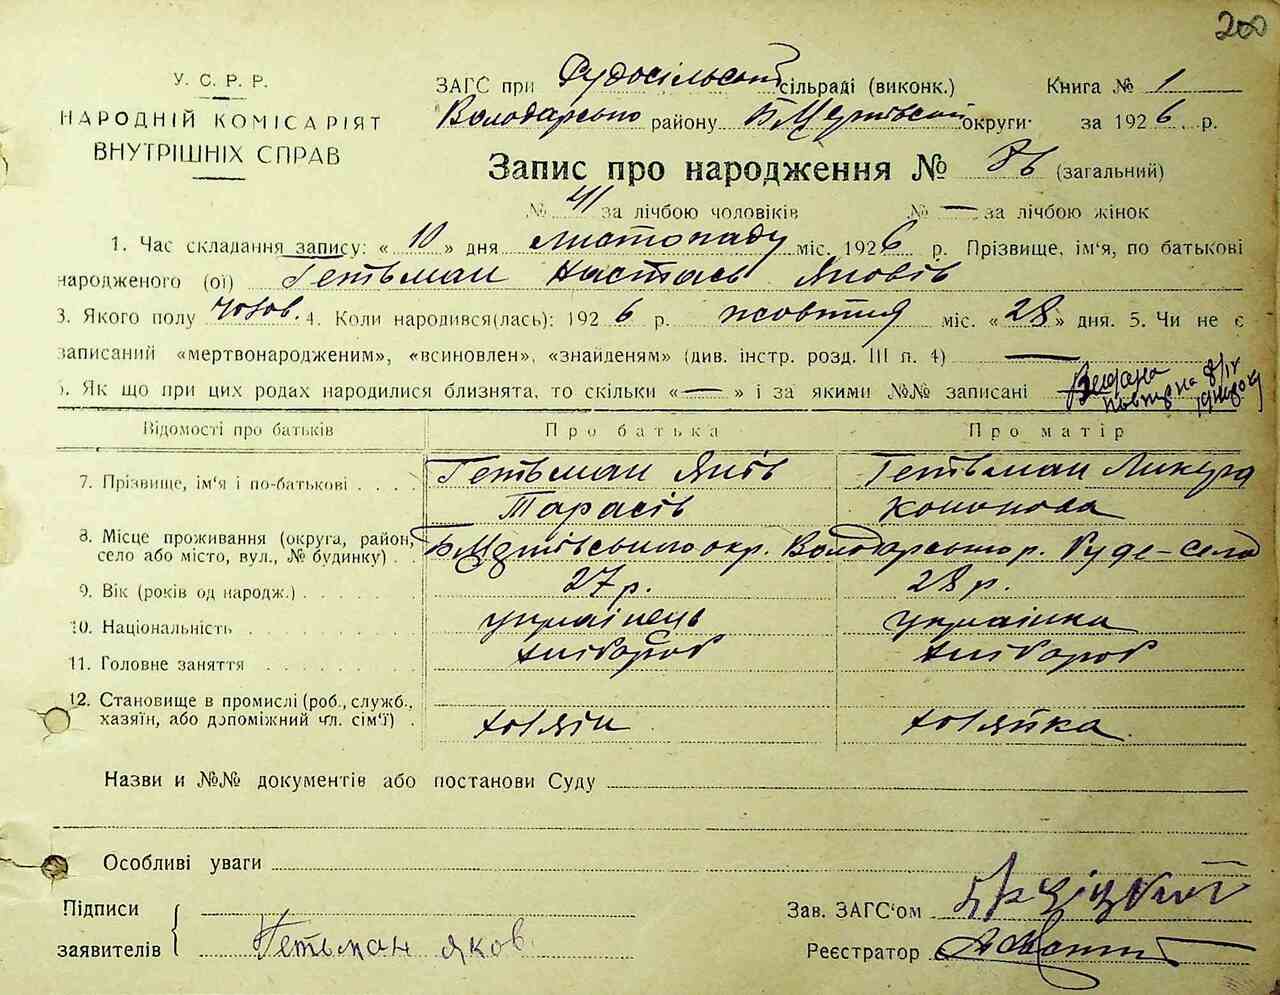 200
У. С. Р. Р.
НАРОДНІЙ КОМІСАРІЯТ
ВНУТРІШНІХ СПРАВ
ЗАГС при Рудосільській сільраді (виконк.) Книга № 1
Володарсько району БЦерківської округи за 1926 р.
Запис про народження № 76 (загальний)
№ 41 за лічбою чоловіків № — за лічбою жінок
1. Час складання запису: « 10 » дня листопаду міс. 1926 р. Прізвище, ім'я, по батькові
народженого (ої) Гетьман Настась Яковів
3. Якого полу чолов. 4. Коли народився(лась): 1926 р. жовтня міс. « 28 » дня. 5. Чи не є
записаний «мертвонародженим», «всиновлен», «знайденям» (див. інстр. розд. III п. 4) —
6. Як що при цих родах народилися близнята, то скільки « — » і за якими №№ записані
Видана
Відомості про батьків Про батька Про матір
7. Прізвище, ім'я і по-батькові . . . . Гетьман Яків Гетьман Ликера
Тарасів Кононова
8. Місце проживання (округа, район,
село або місто, вул., № будинку) . . БЦерківського окр. Володарського р. Руде-Село
9. Вік (років од народж.) . . . . . . 27 р. 28 р.
10. Національність . . . . . . . українець українка
11. Головне заняття . . . . . . . хлібороб хлібороб
12. Становище в промислі (роб., служб.,
хазяїн, або допоміжний чл. сім'ї) . хазяїн хазяйка
Назви и №№ документів або постанови Суду
Особливі уваги
Підписи
заявителів Гетьман Яков
Зав. ЗАГС'ом
Реєстратор